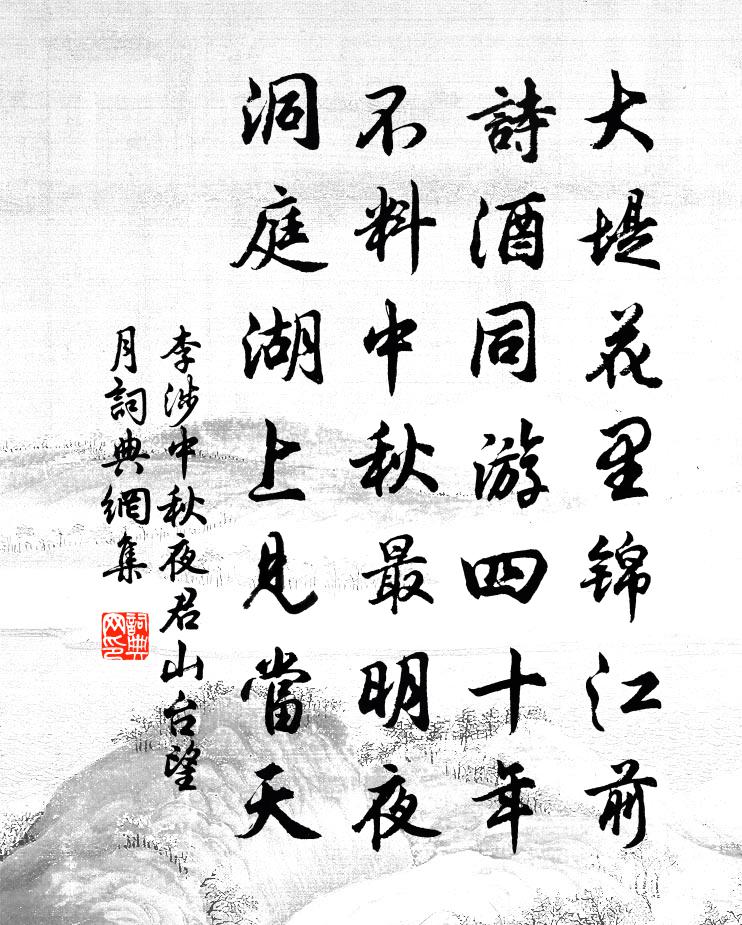 大堤花里锦江前
詩酒同游四十年
不料中秋最明夜
洞庭湖上見當天
李涉中秋夜君山台望
月詞典網集
詞典
网印